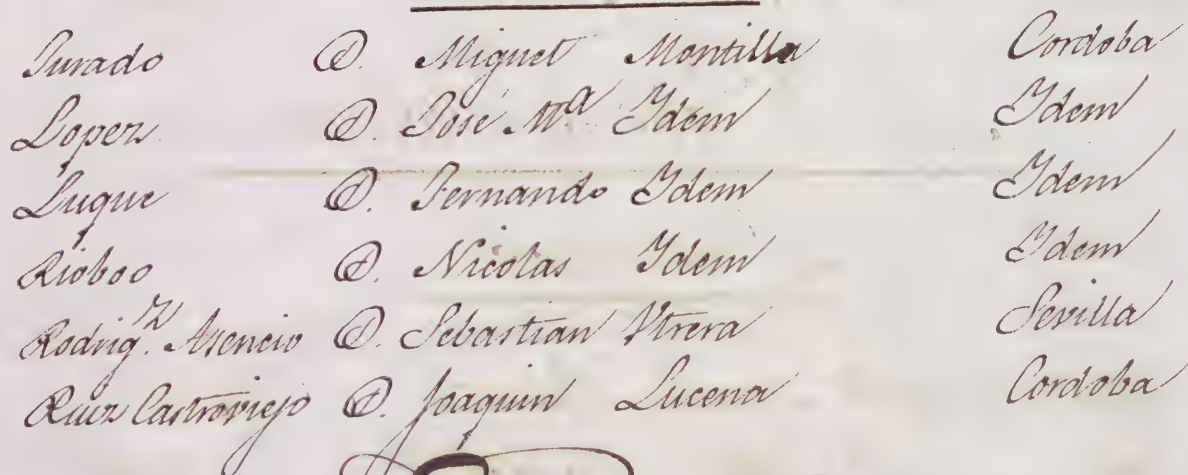 Jurado D. Miguel Montilla Cordoba
Lopez D. José Mª Idem Idem
Luque D. Fernando Idem Idem
Rioboo D. Nicolas Idem Idem
Rodrig.z Asencio D. Sebastian Utrera Sevilla
Ruiz Castroviejo D. Joaquin Lucena Cordoba